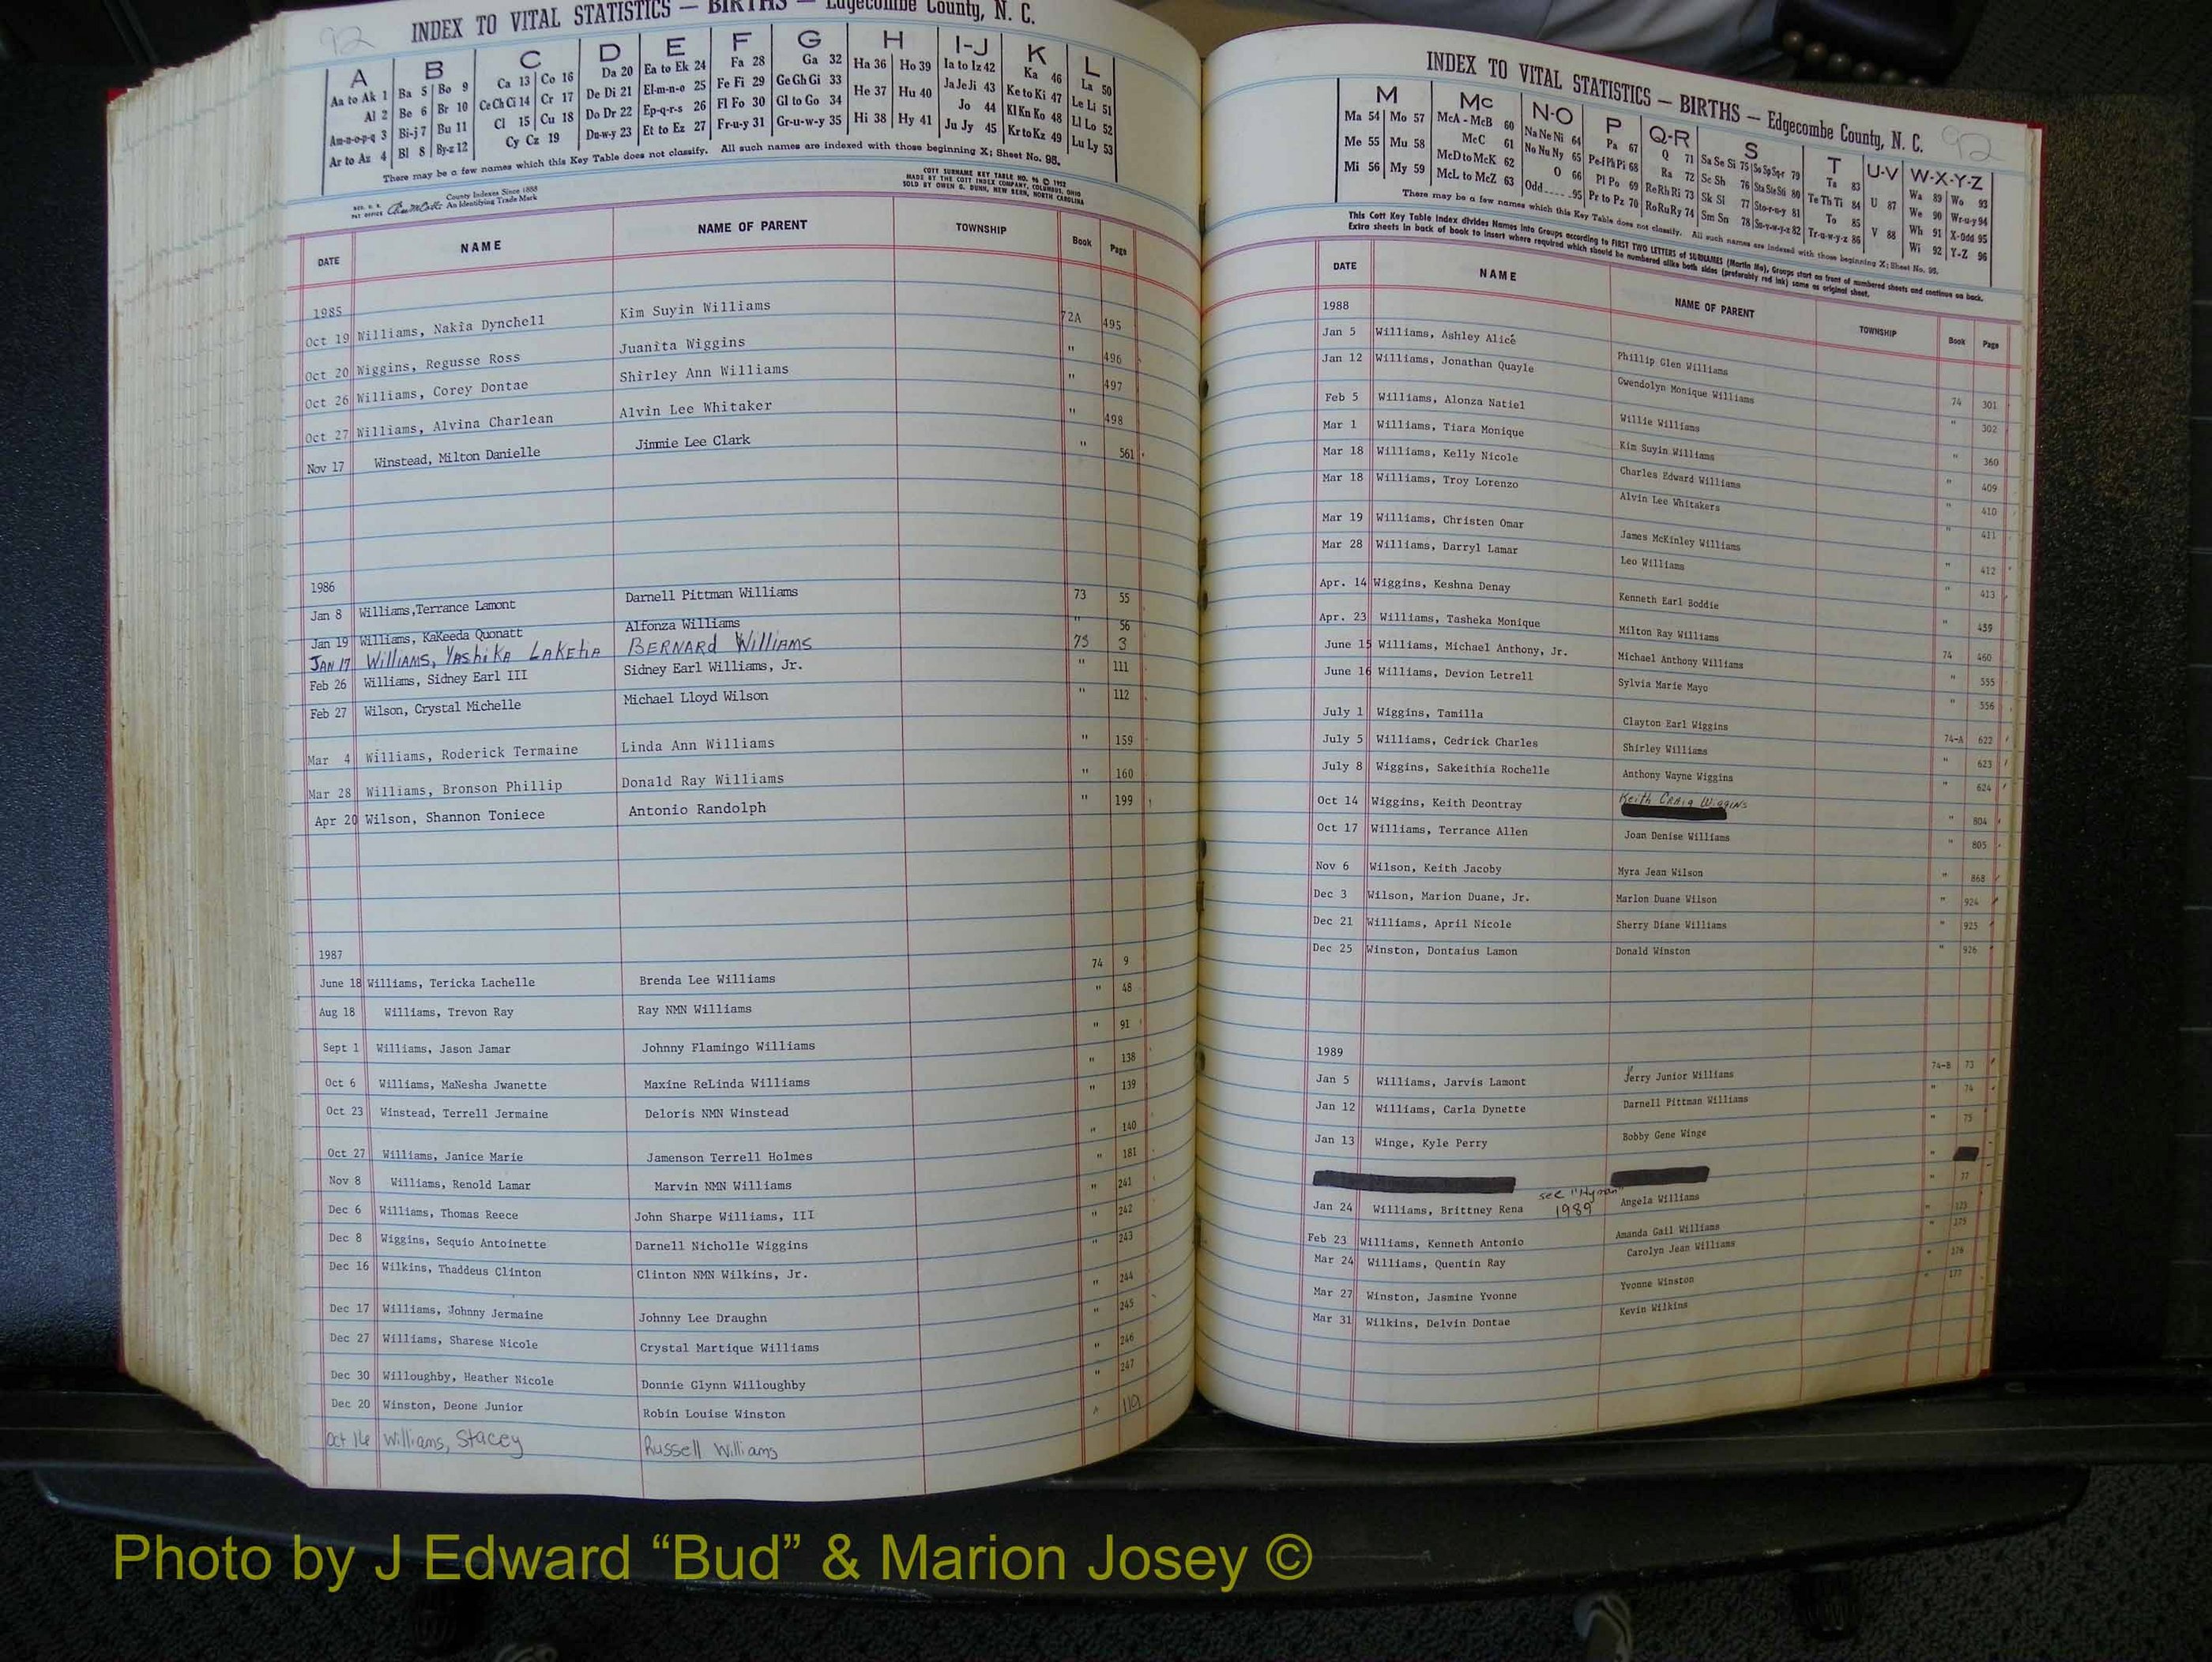 92
INDEX TO VITAL STATISTICS — BIRTHS — Edgecombe County, N. C.
A B C D E F G H I-J K L
Aa to Ak 1 Ba 5 Bo 9 Ca 13 Co 16 Da 20 Ea to Ek 24 Fa 28 Ga 32 Ha 36 Ho 39 Ia to Iz 42 Ka 46 La 50
Al 2 Be 6 Br 10 Ce Ch Ci 14 Cr 17 De Di 21 El-m-n-o 25 Fe Fi 29 Ge Gh Gi 33 He 37 Hu 40 Ja Je Ji 43 Ke to Ki 47 Le Li 51
Am-n-o-p-q 3 Bi-j 7 Bu 11 Cl 15 Cu 18 Do Dr 22 Ep-q-r-s 26 Fl Fo 30 Gl to Go 34 Hi 38 Hy 41 Jo 44 Kl Kn Ko 48 Ll Lo 52
Ar to Az 4 Bl 8 By-z 12 Cy Cz 19 Du-w-y 23 Et to Ez 27 Fr-u-y 31 Gr-u-w-y 35 Ju Jy 45 Kr to Kz 49 Lu Ly 53
There may be a few names which this Key Table does not classify. All such names are indexed with those beginning X; Sheet No. 95.
County Indexes Since 1888
An Identifying Trade Mark
COTT SURNAME KEY TABLE NO. 96 © 1952
MADE BY THE COTT INDEX COMPANY, COLUMBUS, OHIO
SOLD BY OWEN G. DUNN, NEW BERN, NORTH CAROLINA
DATE NAME NAME OF PARENT TOWNSHIP Book Page
1985
Oct 19 Williams, Nakia Dynchell Kim Suyin Williams 72A 495
Oct 20 Wiggins, Regusse Ross Juanita Wiggins " 496
Oct 26 Williams, Corey Dontae Shirley Ann Williams " 497
Oct 27 Williams, Alvina Charlean Alvin Lee Whitaker " 498
Nov 17 Winstead, Milton Danielle Jimmie Lee Clark " 561
1986
Jan 8 Williams,Terrance Lamont Darnell Pittman Williams 73 55
Jan 19 Williams, KaKeeda Quonatt Alfonza Williams " 56
JAN 17 Williams, Yashika Laketia BERNARD Williams 73 3
Feb 26 Williams, Sidney Earl III Sidney Earl Williams, Jr. " 111
Feb 27 Wilson, Crystal Michelle Michael Lloyd Wilson " 112
Mar 4 Williams, Roderick Termaine Linda Ann Williams " 159
Mar 28 Williams, Bronson Phillip Donald Ray Williams " 160
Apr 20 Wilson, Shannon Toniece Antonio Randolph " 199
1987
June 18 Williams, Tericka Lachelle Brenda Lee Williams 74 9
Aug 18 Williams, Trevon Ray Ray NMN Williams " 48
Sept 1 Williams, Jason Jamar Johnny Flamingo Williams " 91
Oct 6 Williams, MaNesha Jwanette Maxine ReLinda Williams " 138
Oct 23 Winstead, Terrell Jermaine Deloris NMN Winstead " 139
Oct 27 Williams, Janice Marie Jamenson Terrell Holmes " 140
Nov 8 Williams, Renold Lamar Marvin NMN Williams " 181
Dec 6 Williams, Thomas Reece John Sharpe Williams, III " 241
Dec 8 Wiggins, Sequio Antoinette Darnell Nicholle Wiggins " 242
Dec 16 Wilkins, Thaddeus Clinton Clinton NMN Wilkins, Jr. " 243
Dec 17 Williams, Johnny Jermaine Johnny Lee Draughn " 244
Dec 27 Williams, Sharese Nicole Crystal Martique Williams " 245
Dec 30 Willoughby, Heather Nicole Donnie Glynn Willoughby " 246
Dec 20 Winston, Deone Junior Robin Louise Winston " 247
Oct 16 Williams, Stacey Russell Williams " 119
INDEX TO VITAL STATISTICS — BIRTHS — Edgecombe County, N. C.
92
M Mc N-O P Q-R S T U-V W-X-Y-Z
Ma 54 Mo 57 McA - McB 60 Na Ne Ni 64 Pa 67 Q 71 Sa Se Si 75 So Sp Sq-r 79 Ta 83 U 87 Wa 89 Wo 93
Me 55 Mu 58 McC 61 No Nu Ny 65 Pe-f Ph Pi 68 Ra 72 Sc Sh 76 Sta Ste Sti 80 Te Th Ti 84 V 88 We 90 Wr-u-y 94
Mi 56 My 59 McD to McK 62 O 66 Pl Po 69 Re Rh Ri 73 Sk Sl 77 Sto-r-u-y 81 To 85 Wh 91 X-Odd 95
McL to McZ 63 Odd 95 Pr to Pz 70 Ro Ru Ry 74 Sm Sn 78 Su-v-w-y-z 82 Tr-u-w-y-z 86 Wi 92 Y-Z 96
There may be a few names which this Key Table does not classify. All such names are indexed with those beginning X; Sheet No. 95.
This Cott Key Table Index divides Names into Groups according to FIRST TWO LETTERS of SURNAMES (Martin Ma), Groups start on front of numbered sheets and continue on back.
Extra sheets in back of book to insert where required which should be numbered alike both sides (preferably red ink) same as original sheet.
DATE NAME NAME OF PARENT TOWNSHIP Book Page
1988
Jan 5 Williams, Ashley Alice Phillip Glen Williams 74 301
Jan 12 Williams, Jonathan Quayle Gwendolyn Monique Williams " 302
Feb 5 Williams, Alonza Natiel Willie Williams " 360
Mar 1 Williams, Tiara Monique Kim Suyin Williams " 409
Mar 18 Williams, Kelly Nicole Charles Edward Williams " 410
Mar 18 Williams, Troy Lorenzo Alvin Lee Whitakers " 411
Mar 19 Williams, Christen Omar James McKinley Williams " 412
Mar 28 Williams, Darryl Lamar Leo Williams " 413
Apr. 14 Wiggins, Keshna Denay Kenneth Earl Boddie " 459
Apr. 23 Williams, Tasheka Monique Milton Ray Williams 74 460
June 15 Williams, Michael Anthony, Jr. Michael Anthony Williams " 555
June 16 Williams, Devion Letrell Sylvia Marie Mayo " 556
July 1 Wiggins, Tamilla Clayton Earl Wiggins 74-A 622
July 5 Williams, Cedrick Charles Shirley Williams " 623
July 8 Wiggins, Sakeithia Rochelle Anthony Wayne Wiggins " 624
Oct 14 Wiggins, Keith Deontray Keith Craig Wiggins " 804
Oct 17 Williams, Terrance Allen Joan Denise Williams " 805
Nov 6 Wilson, Keith Jacoby Myra Jean Wilson " 868
Dec 3 Wilson, Marion Duane, Jr. Marlon Duane Wilson " 924
Dec 21 Williams, April Nicole Sherry Diane Williams " 925
Dec 25 Winston, Dontaius Lamon Donald Winston " 926
1989
Jan 5 Williams, Jarvis Lamont Jerry Junior Williams 74-B 73
Jan 12 Williams, Carla Dynette Darnell Pittman Williams " 74
Jan 13 Winge, Kyle Perry Bobby Gene Winge " 75
see "Hyman" 1989
Jan 24 Williams, Brittney Rena Angela Williams " 77
Feb 23 Williams, Kenneth Antonio Amanda Gail Williams " 123
Mar 24 Williams, Quentin Ray Carolyn Jean Williams " 175
Mar 27 Winston, Jasmine Yvonne Yvonne Winston " 176
Mar 31 Wilkins, Delvin Dontae Kevin Wilkins " 177
Photo by J Edward “Bud” & Marion Josey ©